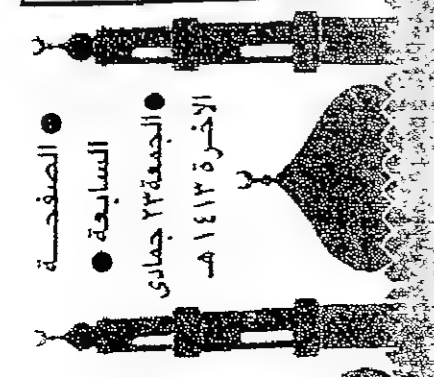 ● الصفحـــة
السابعة ●
● الجمعة ٢٣ جمادى
الاخـرة ١٤١٣ هـ